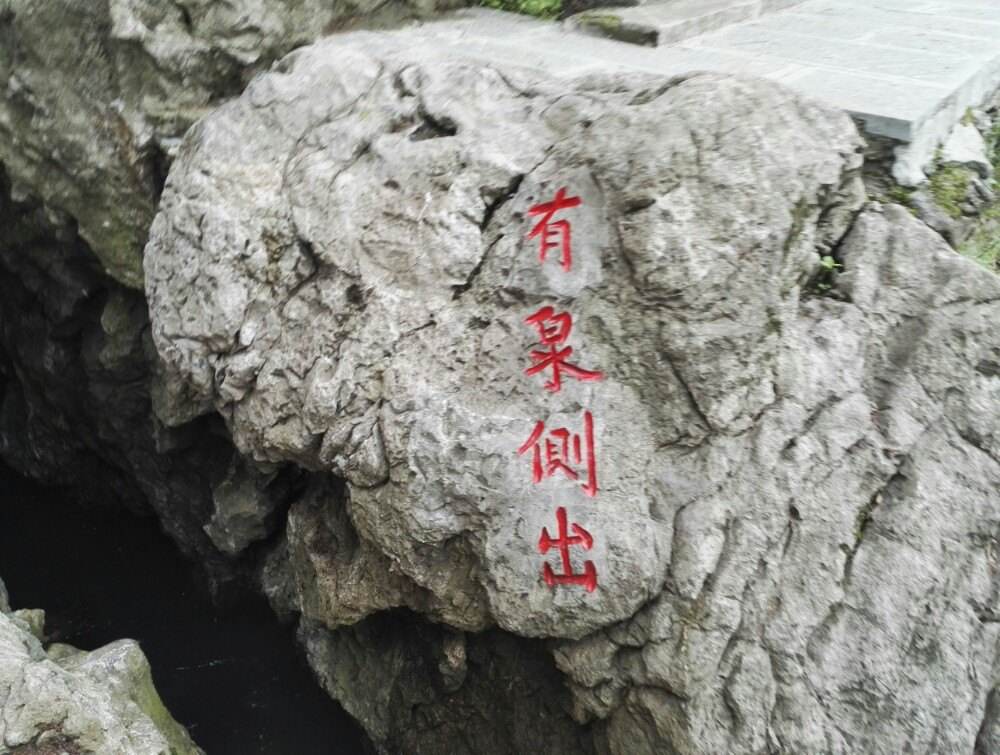 有泉侧出